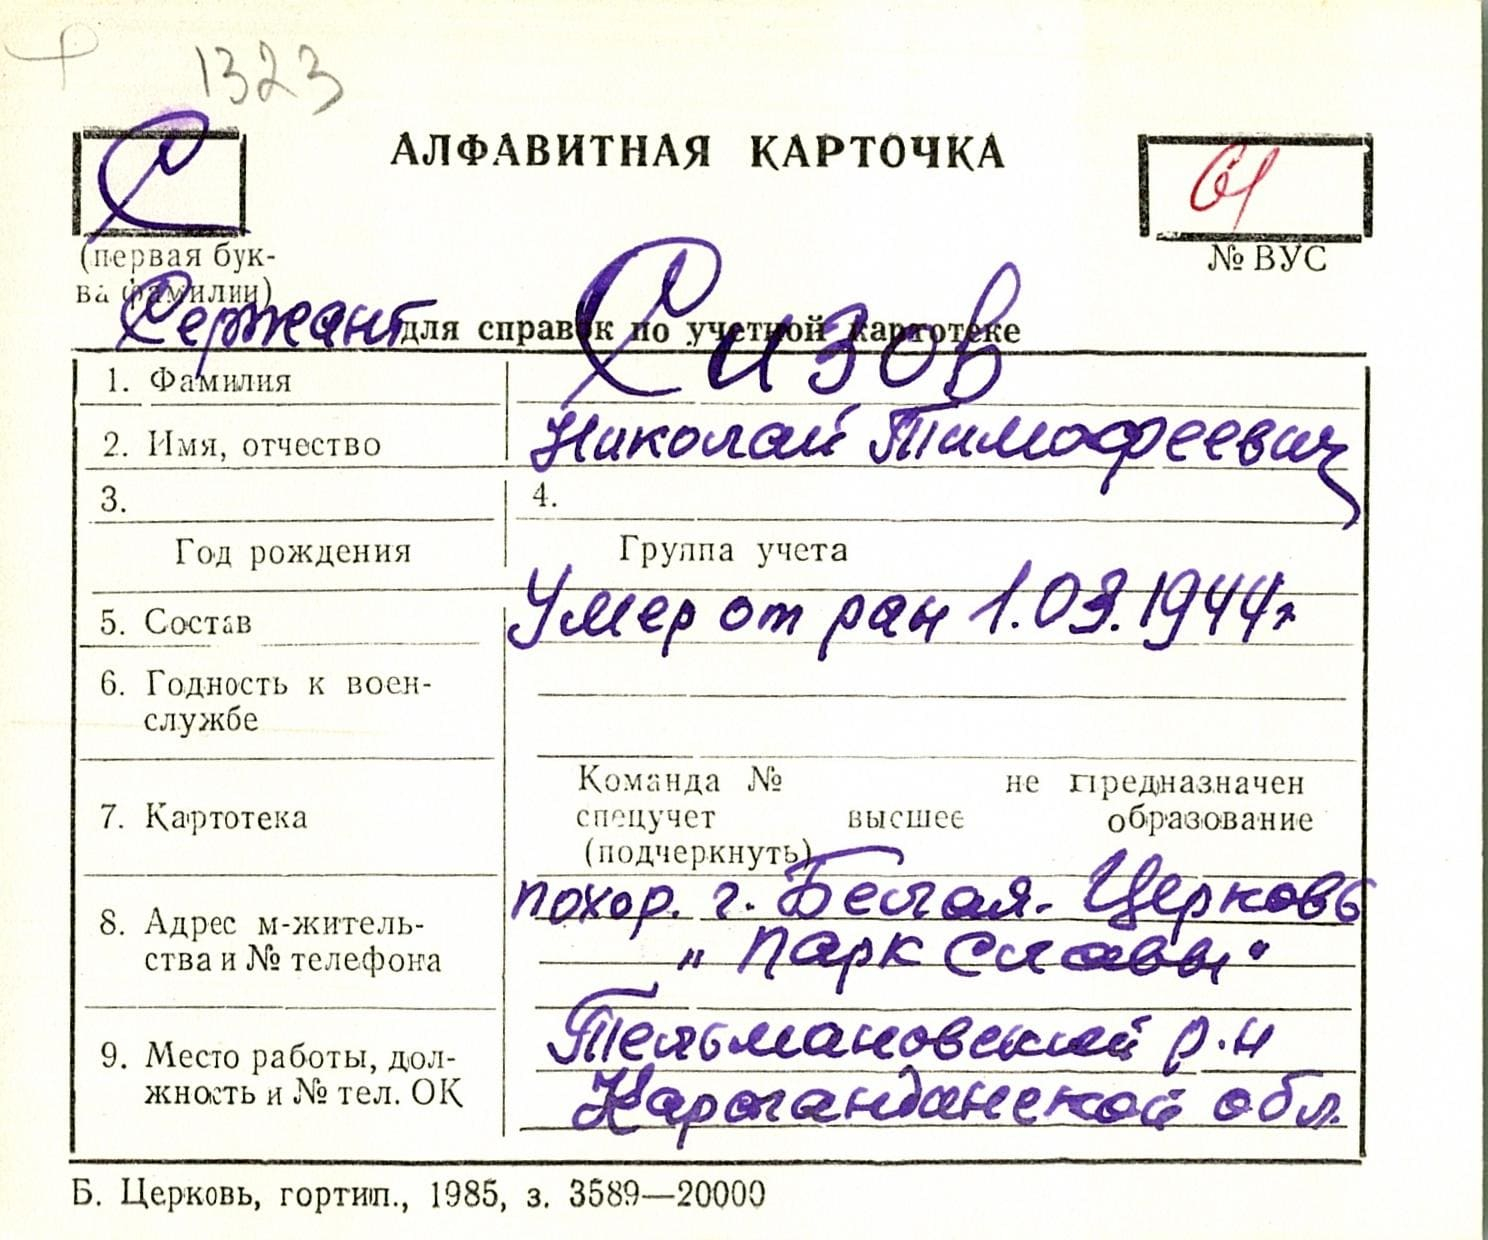 1323
С
АЛФАВИТНАЯ КАРТОЧКА
61
(первая бук-
ва фамилии)
№ ВУС
Сержант
для справок по учетной картотеке
1. Фамилия Сизов
2. Имя, отчество Николай Тимофеевич
3. 4.
Год рождения Группа учета
5. Состав Умер от ран 1.03.1944г
6. Годность к воен-
службе
Команда № не предназначен
7. Картотека спецучет высшее образование
(подчеркнуть)
похор. г. Белая-Церковь
8. Адрес м-житель-
ства и № телефона „Парк Славы"
Тельмановский р.н
9. Место работы, дол-
жность и № тел. ОК Карагандинской обл.
Б. Церковь, гортип., 1985, з. 3589—20000